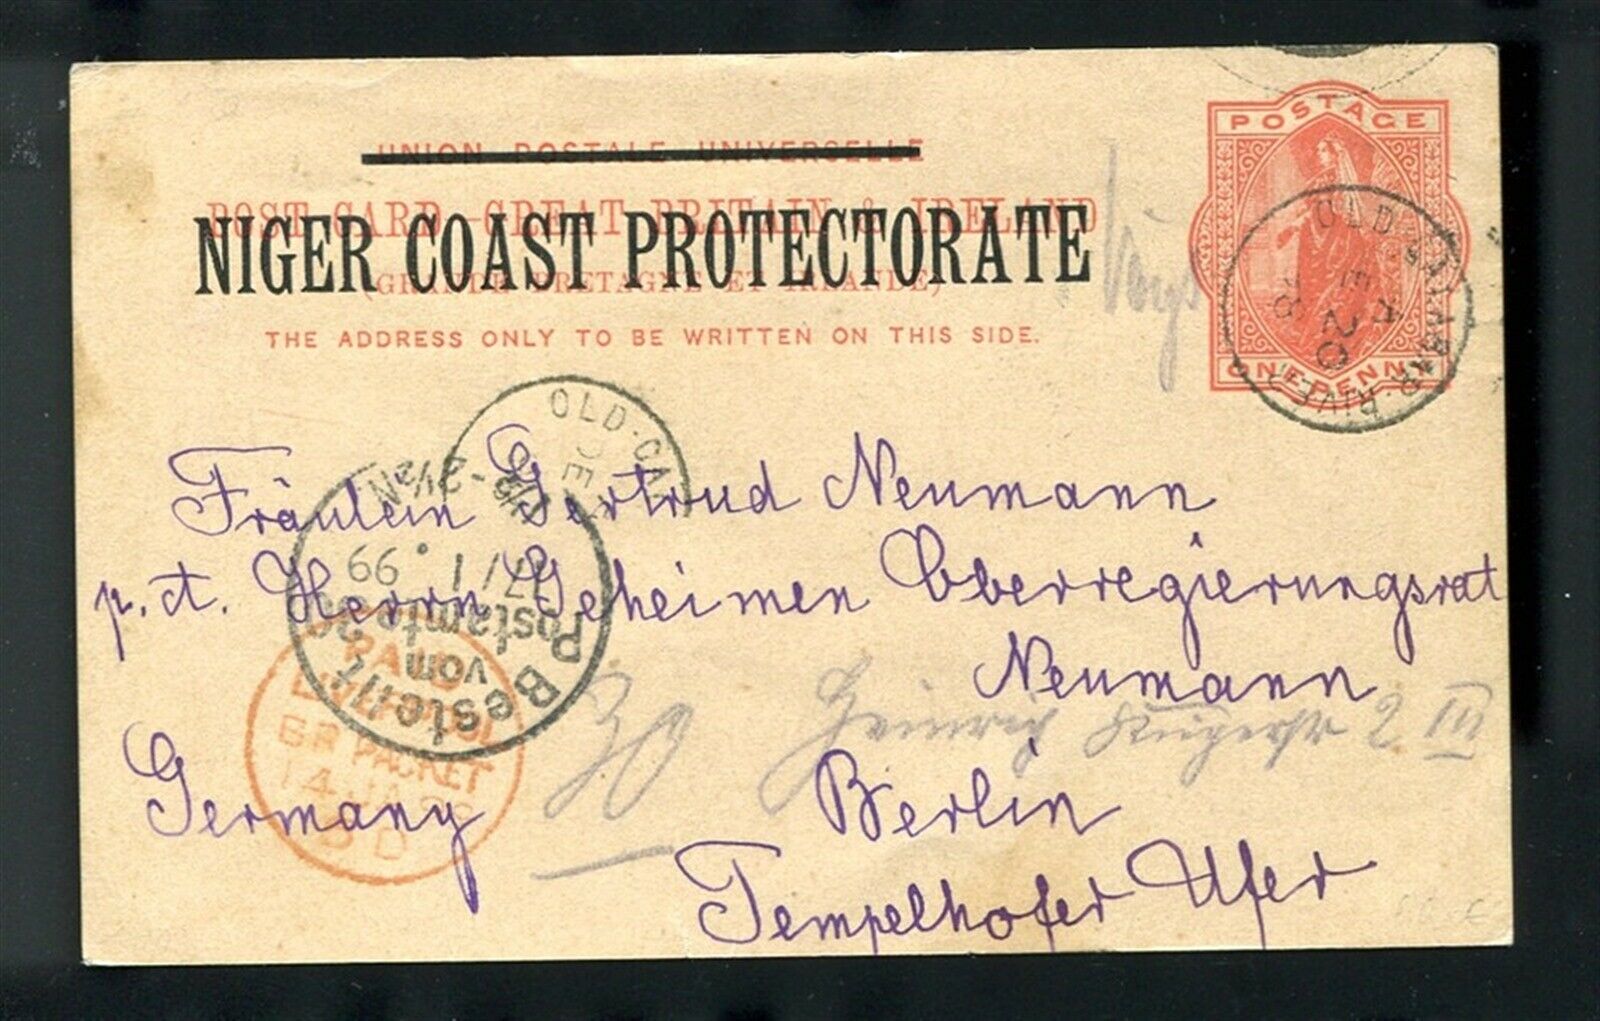 POSTAGE
UNION POSTALE UNIVERSELLE
POST CARD-GREAT BRITAIN & IRELAND
NIGER COAST PROTECTORATE
(GRANDE BRETAGNE ET IRLANDE)
THE ADDRESS ONLY TO BE WRITTEN ON THIS SIDE.
ONE PENNY
OLD·CALABAR·RIVER
DE 20
98
OLD·CAL
DE
Fräulein Gertrud Neumann
p. t. Herrn Geheimen Oberregierungsrat
Neumann
Germany
Berlin
Tempelhofer Ufer
30
Heinrich
2 III
Bestellt
vom
Postamte
17/1. 99
2½N
PAID
LIVERPOOL
BR PACKET
14 JA 99